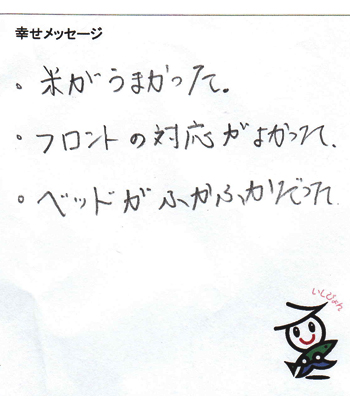 幸せメッセージ
。米がうまかった。
。フロントの対応がよかった、
。ベッドがふかふかだった
いしぴょん